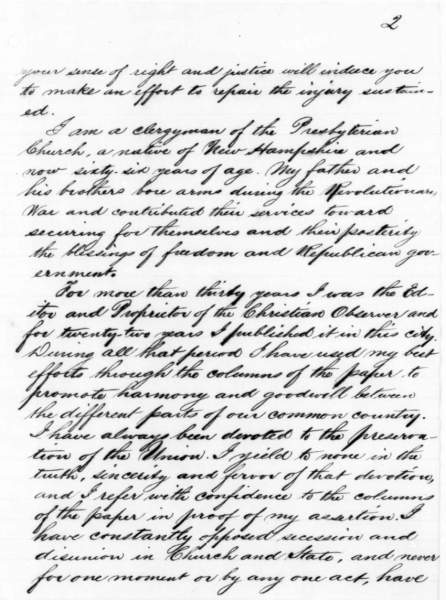 2
your sense of right and justice will induce you
to make an effort to repair the injury sustain-
ed.
I am a clergyman of the Presbyterian
Church, a native of New Hampshire and
now sixty-six years of age. My father and
his brothers bore arms during the Revolutionary
War and contributed their services toward
securing for themselves and their posterity
the blessings of freedom and Republican gov-
ernment.
For more than thirty years I was the Ed-
itor and Proprietor of the Christian Observer and
for twenty-two years I published it in this city.
During all that period I have used my best
efforts through the columns of the paper to
promote harmony and goodwill between
the different parts of our common country.
I have always been devoted to the preserva-
tion of the Union. I yield to none in the
truth, sincerity and fervor of that devotion,
and I refer with confidence to the columns
of the paper in proof of my assertion. I
have constantly opposed secession and
disunion in Church and State, and never
for one moment or by any one act, have